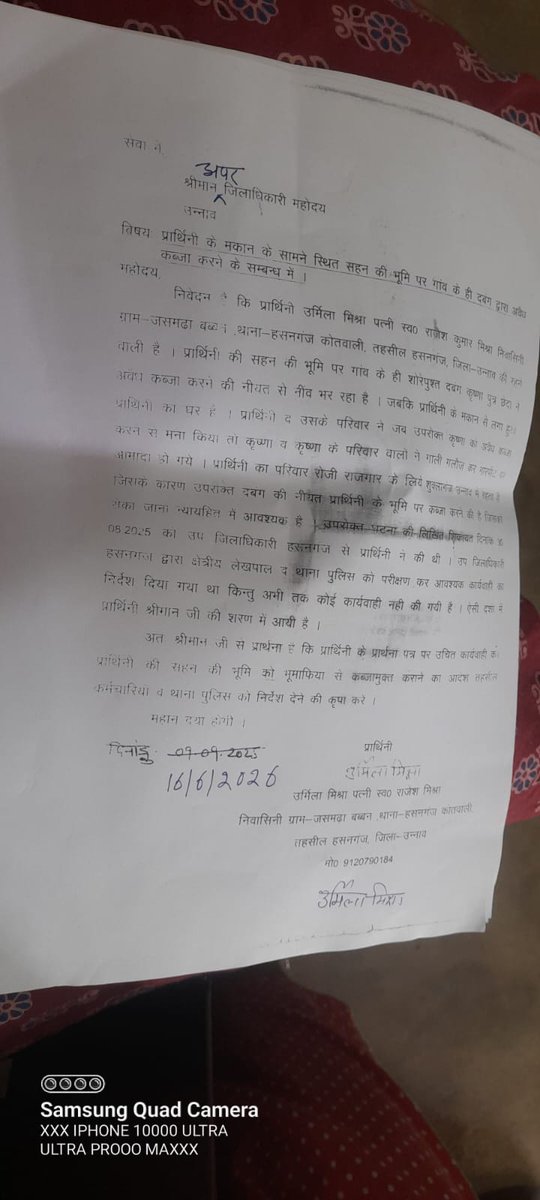 सेवा में,
अपर
श्रीमान जिलाधिकारी महोदय
उन्नाव
विषय प्रार्थिनी के मकान के सामने स्थित सहन की भूमि पर गांव के ही दबंग द्वारा अवैध
कब्जा करने के सम्बन्ध में ।
महोदय,
निवेदन है कि प्रार्थिनी उर्मिला मिश्रा पत्नी स्व0 राजेश कुमार मिश्रा निवासिनी
ग्राम-जसमढा बब्बन थाना-हसनगंज कोतवाली, तहसील हसनगंज, जिला-उन्नाव की रहने
वाली है । प्रार्थिनी की सहन की भूमि पर गांव के ही शोरेपुश्त दबंग कृष्णा पुत्र
अवैध कब्जा करने की नीयत से नींव भर रहा है । जबकि प्रार्थिनी के मकान से लगा हुआ
प्रार्थिनी का घर है । प्रार्थिनी व उसके परिवार ने जब उपरोक्त कृष्णा को अवैध
करने से मना किया तो कृष्णा व कृष्णा के परिवार वालो ने गाली गलौज कर मारपीट
आमादा हो गये । प्रार्थिनी का परिवार रोजी राजगार के लिये शुक्लागंज उन्नाव में रहता है
जिसके कारण उपरोक्त दबंग की नीयत प्रार्थिनी के भूमि पर कब्जा करने की है जिसको
रोका जाना न्यायहित में आवश्यक है । उपरोक्त घटना की लिखित शिकायत दिनांक
08.2025 को उप जिलाधिकारी हसनगंज से प्रार्थिनी ने की थी । उप जिलाधिकारी
हसनगंज द्वारा क्षेत्रीय लेखपाल व थाना पुलिस को परीक्षण कर आवश्यक कार्यवाही का
निर्देश दिया गया था किन्तु अभी तक कोई कार्यवाही नही की गयी है । ऐसी दशा में
प्रार्थिनी श्रीमान जी की शरण में आयी है ।
अत श्रीमान जी से प्रार्थना है कि प्रार्थिनी के प्रार्थना पत्र पर उचित कार्यवाही कर
प्रार्थिनी की सहन की भूमि को भूमाफिया से कब्जामुक्त कराने का आदेश तहसील
कर्मचारियों व थाना पुलिस को निर्देश देने की कृपा करे ।
महान दया होगी ।
दिनांक 09.09.2025
16/6/2026
प्रार्थिनी
उर्मिला मिश्रा
उर्मिला मिश्रा पत्नी स्व0 राजेश मिश्रा
निवासिनी ग्राम-जसमढा बब्बन, थाना-हसनगंज कोतवाली,
तहसील हसनगंज, जिला-उन्नाव
मो0 9120790184
उर्मिला मिश्रा
Samsung Quad Camera
XXX IPHONE 10000 ULTRA
ULTRA PROOO MAXXX